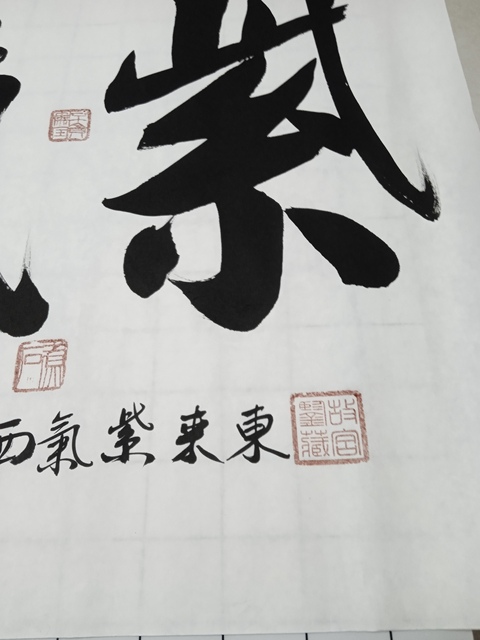 紫
東来紫氣西
故宮鑒藏